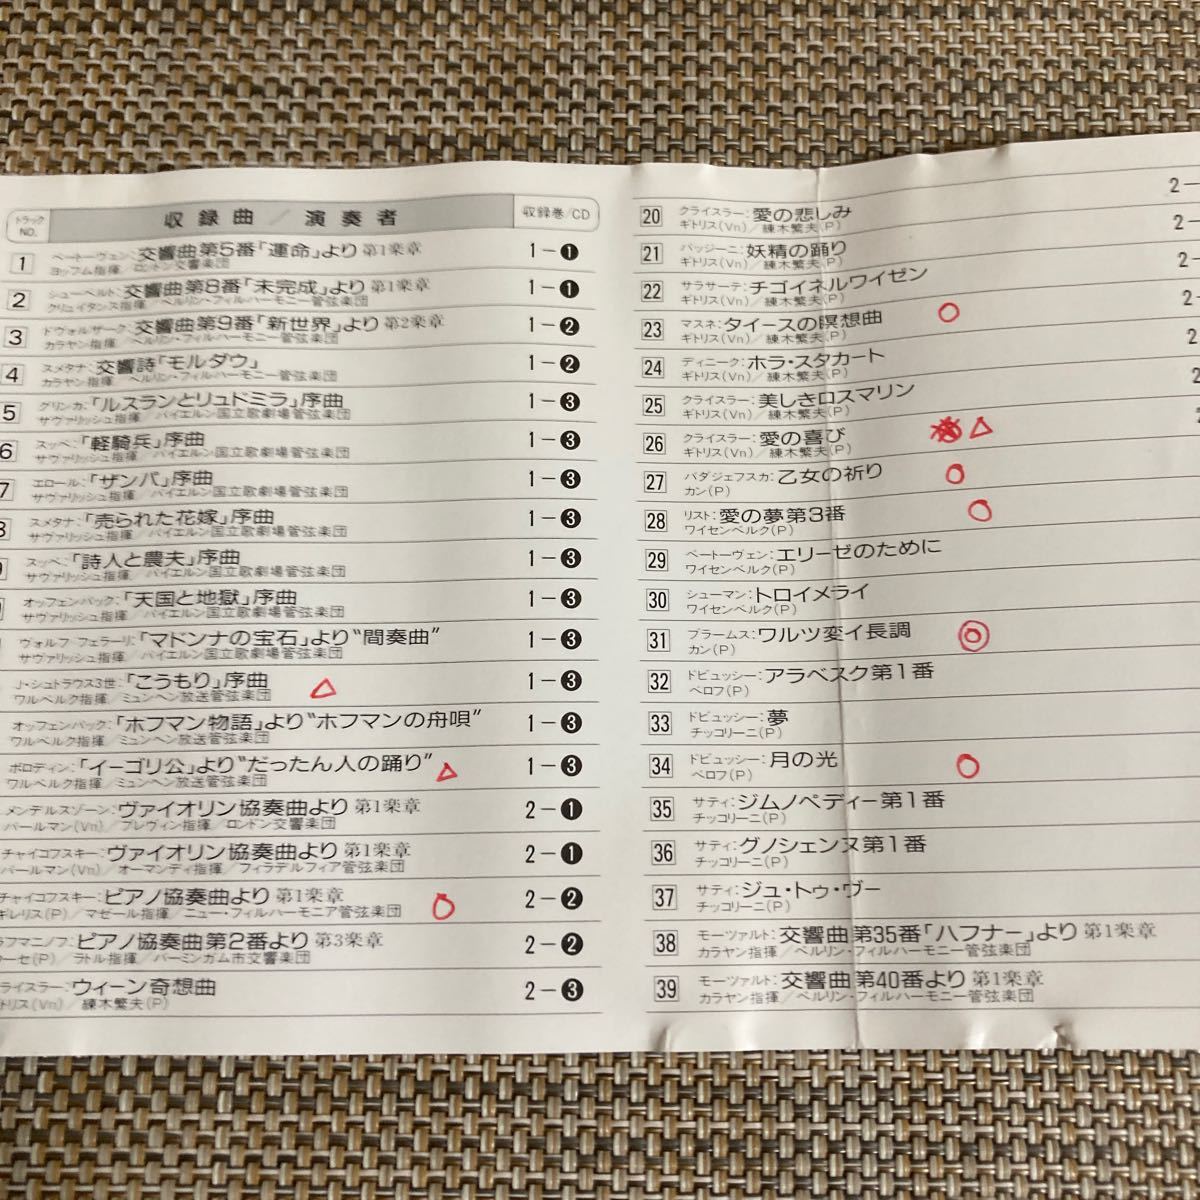 トラック NO.
収録曲／演奏者
収録巻/CD
1 ベートーヴェン:交響曲第5番「運命」より 第1楽章 1−❶
ヨッフム指揮／ロンドン交響楽団
2 シューベルト:交響曲第8番「未完成」より 第1楽章 1−❶
クリュイタンス指揮／ベルリン・フィルハーモニー管弦楽団
3 ドヴォルザーク:交響曲第9番「新世界」より 第2楽章 1−❷
カラヤン指揮／ベルリン・フィルハーモニー管弦楽団
4 スメタナ:交響詩「モルダウ」 1−❷
カラヤン指揮／ベルリン・フィルハーモニー管弦楽団
5 グリンカ:「ルスランとリュドミラ」序曲 1−❸
サヴァリッシュ指揮／バイエルン国立歌劇場管弦楽団
6 スッペ:「軽騎兵」序曲 1−❸
サヴァリッシュ指揮／バイエルン国立歌劇場管弦楽団
7 エロール:「ザンパ」序曲 1−❸
サヴァリッシュ指揮／バイエルン国立歌劇場管弦楽団
8 スメタナ:「売られた花嫁」序曲 1−❸
サヴァリッシュ指揮／バイエルン国立歌劇場管弦楽団
スッペ:「詩人と農夫」序曲 1−❸
サヴァリッシュ指揮／バイエルン国立歌劇場管弦楽団
オッフェンバック:「天国と地獄」序曲 1−❸
サヴァリッシュ指揮／バイエルン国立歌劇場管弦楽団
ヴォルフ フェラーリ:「マドンナの宝石」より“間奏曲” 1−❸
サヴァリッシュ指揮／バイエルン国立歌劇場管弦楽団
J・シュトラウス3世:「こうもり」序曲 1−❸
ワルベルク指揮／ミュンヘン放送管弦楽団
オッフェンバック:「ホフマン物語」より“ホフマンの舟唄” 1−❸
ワルベルク指揮／ミュンヘン放送管弦楽団
ボロディン:「イーゴリ公」より“だったん人の踊り” 1−❸
ワルベルク指揮／ミュンヘン放送管弦楽団
メンデルスゾーン:ヴァイオリン協奏曲より 第1楽章 2−❶
パールマン(Vn)／プレヴィン指揮／ロンドン交響楽団
チャイコフスキー:ヴァイオリン協奏曲より 第1楽章 2−❶
パールマン(Vn)／オーマンディ指揮／フィラデルフィア管弦楽団
チャイコフスキー:ピアノ協奏曲より 第1楽章 2−❷
ギレリス(P)／マゼール指揮／ニュー・フィルハーモニア管弦楽団
フマニノフ:ピアノ協奏曲第2番より 第3楽章 2−❷
ーセ(P)／ラトル指揮／バーミンガム市交響楽団
ライスラー:ウィーン奇想曲 2−❸
トリス(Vn)／練木繁夫(P)
20 クライスラー:愛の悲しみ 2−
ギトリス(Vn)／練木繁夫(P)
21 バッジーニ:妖精の踊り 2−
ギトリス(Vn)／練木繁夫(P)
22 サラサーテ:チゴイネルワイゼン 2−
ギトリス(Vn)／練木繁夫(P)
23 マスネ:タイースの瞑想曲 2−
ギトリス(Vn)／練木繁夫(P)
24 ディニーク:ホラ・スタカート 2
ギトリス(Vn)／練木繁夫(P)
25 クライスラー:美しきロスマリン 2
ギトリス(Vn)／練木繁夫(P)
26 クライスラー:愛の喜び
ギトリス(Vn)／練木繁夫(P)
27 バダジェフスカ:乙女の祈り
カン(P)
28 リスト:愛の夢第3番
ワイセンベルク(P)
29 ベートーヴェン:エリーゼのために
ワイセンベルク(P)
30 シューマン:トロイメライ
ワイセンベルク(P)
31 ブラームス:ワルツ変イ長調
カン(P)
32 ドビュッシー:アラベスク第1番
ベロフ(P)
33 ドビュッシー:夢
チッコリーニ(P)
34 ドビュッシー:月の光
ベロフ(P)
35 サティ:ジムノペディー第1番
チッコリーニ(P)
36 サティ:グノシェンヌ第1番
チッコリーニ(P)
37 サティ:ジュ・トゥ・ヴー
チッコリーニ(P)
38 モーツァルト:交響曲第35番「ハフナー」より 第1楽章
カラヤン指揮／ベルリン・フィルハーモニー管弦楽団
39 モーツァルト:交響曲第40番より 第1楽章
カラヤン指揮／ベルリン・フィルハーモニー管弦楽団